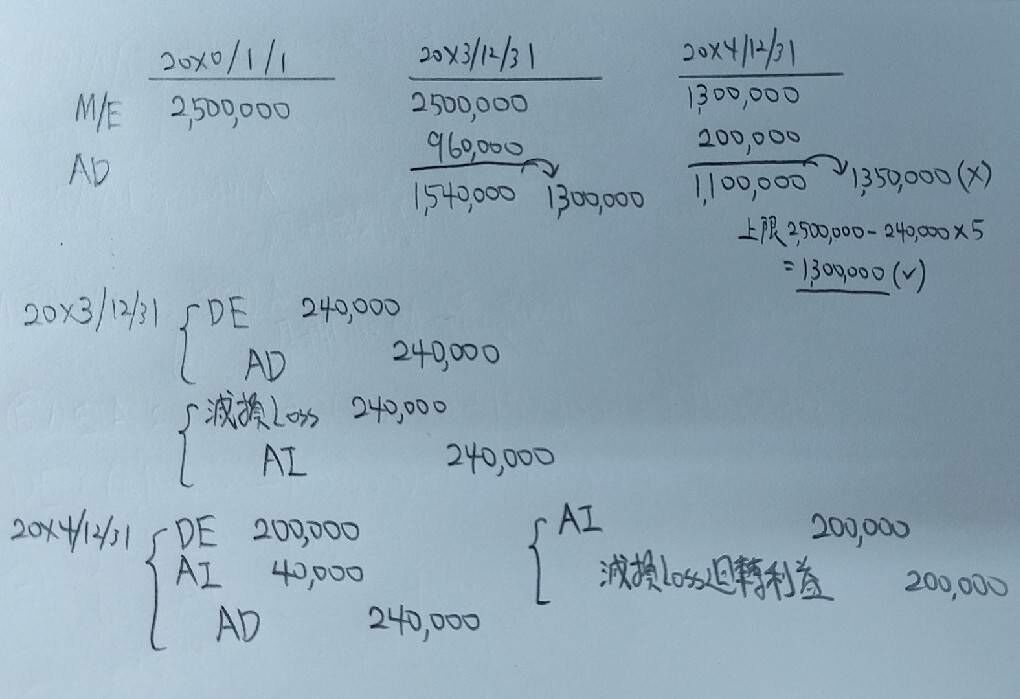 20X0/1/1 20X3/12/31 20X4/12/31
M/E 2,500,000 2500,000 1,300,000
AD 960,000 200,000
1,540,000 1,300,000 1,100,000 1,350,000(X)
上限2,500,000-240,000X5
=1,300,000(√)
20X3/12/31 DE 240,000
AD 240,000
減損Loss 240,000
AI 240,000
20X4/12/31 DE 200,000 AI 200,000
AI 40,000 減損Loss迴轉利益 200,000
AD 240,000